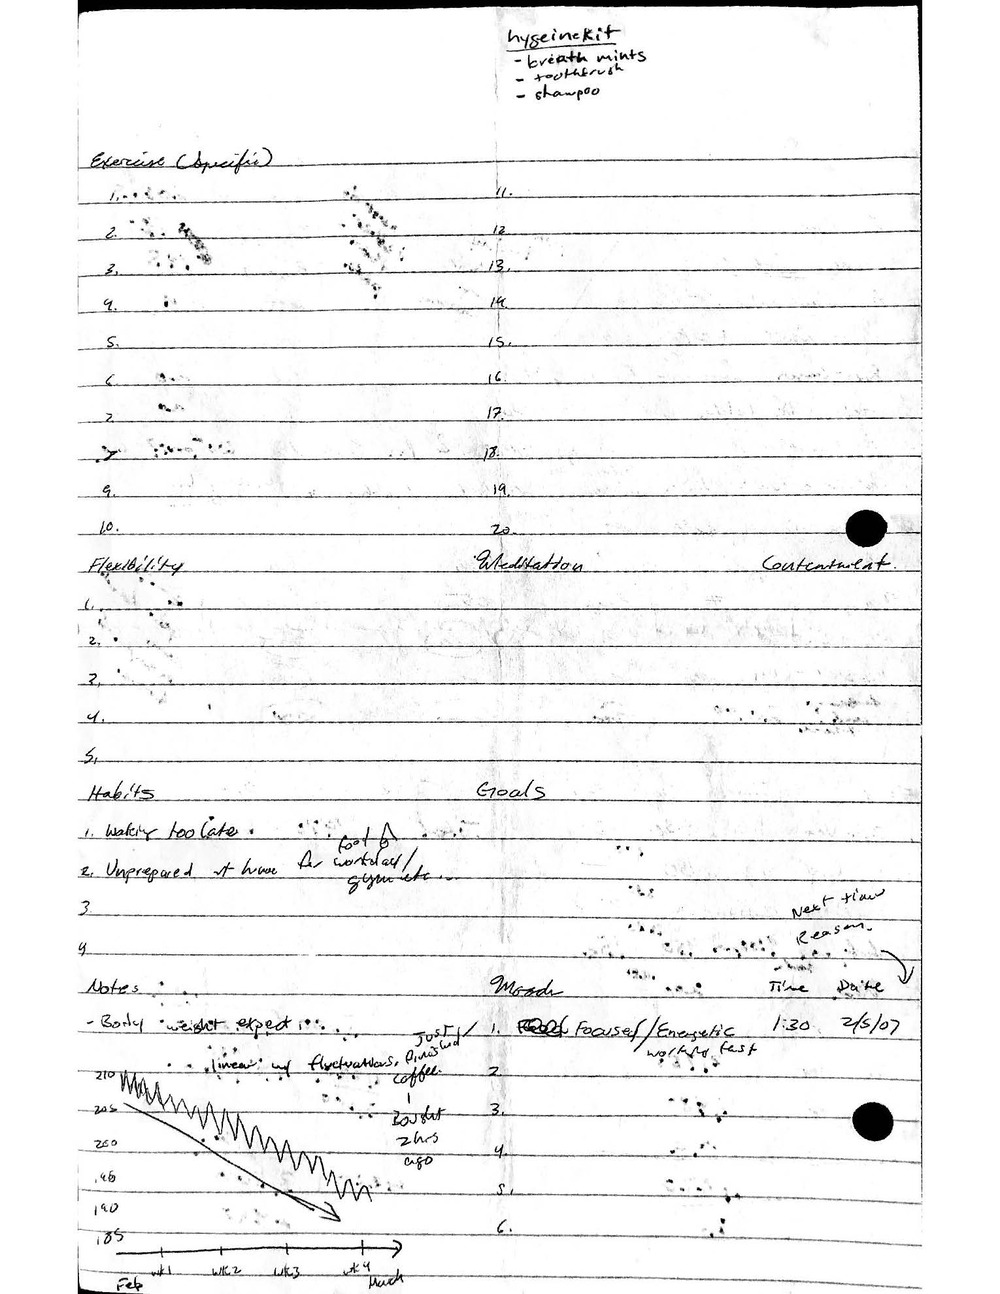 hygeinekit
- breath mints
- toothbrush
- shampoo
Exercise (Specific)
1. 11.
2. 12
3. 13.
4. 14.
5. 15.
6 16
7 17.
18.
9. 19.
10. 20.
Flexibility Meditation Contentment
1.
2.
3.
4.
5.
Habits Goals
1. Waking too late.
2. Unprepared at home for workday/
food
gym etc...
3
4
Next time
Reason.
Notes Moods Time Date
- Body weight expect.
linear w/ fluctuations.
Just
finished
coffee.
Bought
2 hrs
ago
1. Focused/Energetic 1:30 2/5/07
working fast
2
3.
4.
5.
6.
210
205
200
195
190
185
Feb wk1 wk2 wk3 wk4 March